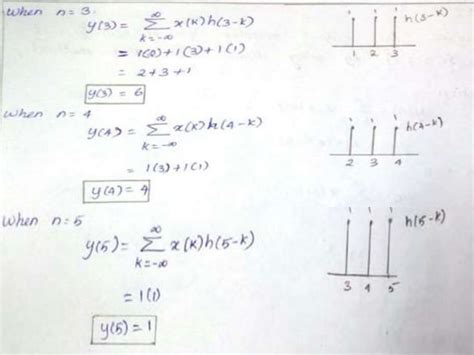 When n= 3.
y(3) = ∞ Σ k=-∞ x(k)h(3-k)
= 1(2)+1(3)+1(1)
= 2+3+1
y(3) = 6
1 1 1 h(3-k)
1 2 3
When n= 4
y(4) = ∞ Σ k=-∞ x(k)h(4-k)
= 1(3)+1(1)
y(4) = 4
1 1 1 h(4-k)
2 3 4
When n=5
y(5) = ∞ Σ k=-∞ x(k)h(5-k)
= 1(1)
y(5) = 1
1 1 1 h(5-k)
3 4 5